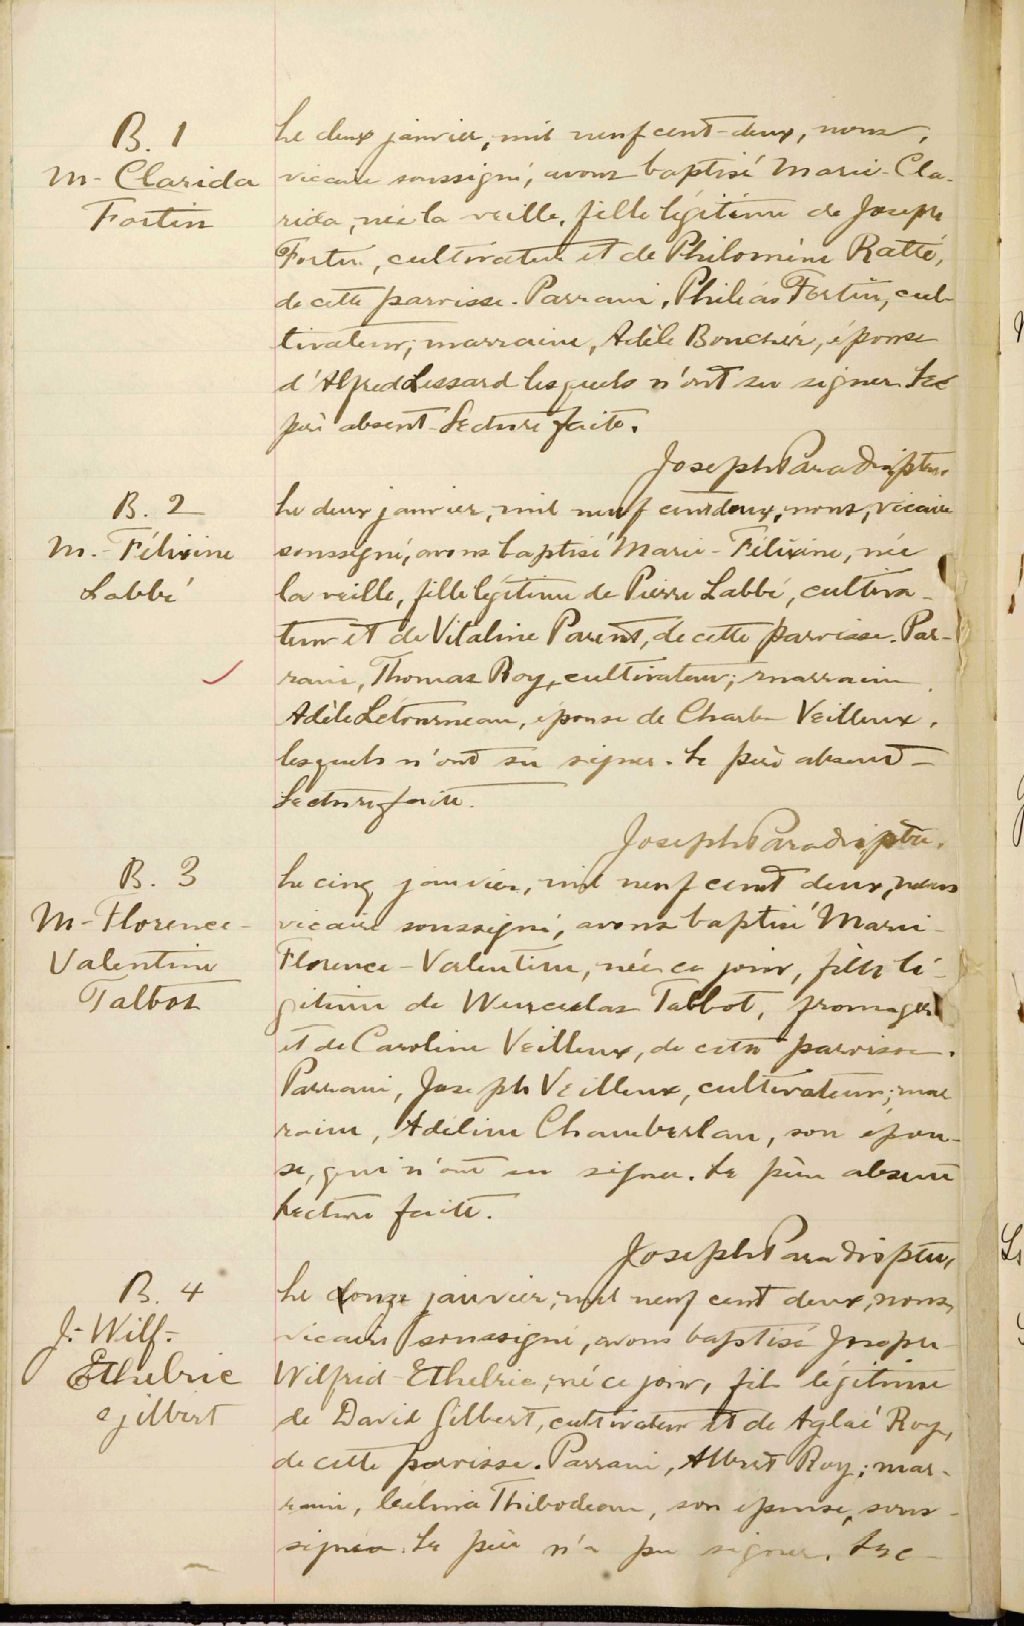 B. 1
M- Clarida
Fortin
Le deux janvier, mil neuf cent-deux, nous,
vicaire soussigné, avons baptisé Marie-Cla-
rida, née la veille, fille légitime de Joseph
Fortin, cultivateur et de Philomène Ratté,
de cette paroisse. Parrain, Philéas Fortin, cul-
tivateur; marraine, Adèle Boucher, épouse
d'Alfred Lessard lesquels n'ont su signer. Le
père absent. Lecture faite.
Joseph Paradis, ptre.
B. 2
M.- Félixine
Labbé
Le deux janvier, mil neuf cent deux, nous, vicaire
soussigné, avons baptisé Marie-Félixine, née
la veille, fille légitime de Pierre Labbé, cultiva-
teur et de Vitaline Parent, de cette paroisse. Par-
rain, Thomas Roy, cultivateur; marraine
Adèle Létourneau, épouse de Charles Veilleux,
lesquels n'ont su signer. Le père absent-
Lecture faite.
Joseph Paradis, ptre.
B. 3
M- Florence-
Valentine
Talbot
Le cinq janvier, mil neuf cent deux, nous
vicaire soussigné, avons baptisé Marie-
Florence-Valentine, née ce jour, fille lé-
gitime de Wenceslas Talbot, fromager
et de Caroline Veilleux, de cette paroisse.
Parrain, Joseph Veilleux, cultivateur; mar
raine, Adéline Chamberlan, son épou-
se, qui n'ont su signer. Le père absent
Lecture faite.
Joseph Paradis ptre,
B. 4
J.- Wilf.-
Ethelric
Gilbert
Le onze janvier, mil neuf cent deux, nous,
vicaire soussigné, avons baptisé Joseph-
Wilfrid-Ethelric, né ce jour, fils légitime
de David Gilbert, cultivateur et de Aglaé Roy,
de cette paroisse. Parrain, Albert Roy; mar-
raine, Thibodeau, son épouse, sous-
signés. Le père n'a pu signer. Lec-